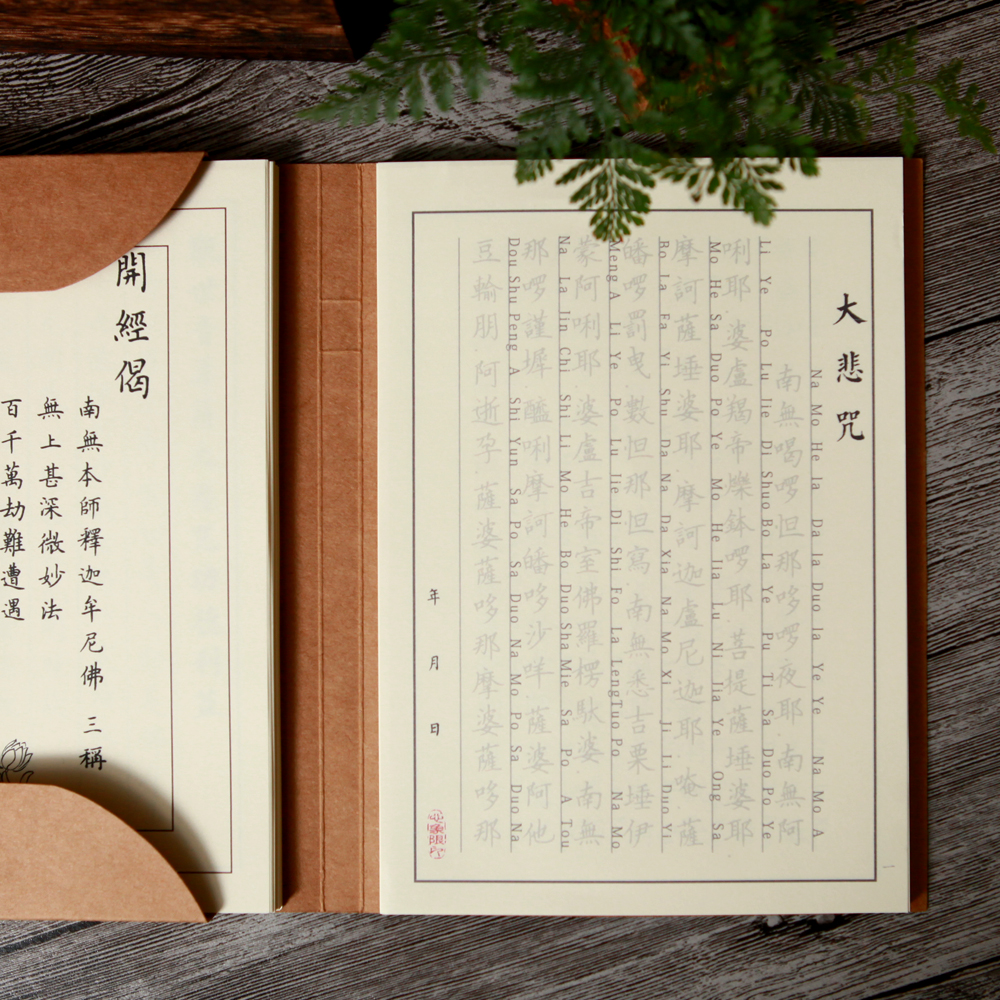 大悲咒
Na Mo He la Da la Duo la Ye Ye Na Mo A
南無喝啰怛那哆啰夜耶 南無阿
Li Ye Po Lu Jie Di Shuo Bo La Ye Pu Ti Sa Duo Po Ye
唎耶 婆盧羯帝爍缽啰耶 菩提薩埵婆耶
Mo He Sa Duo Po Ye Mo He Jia Lu Ni Jia Ye Ong Sa
摩訶薩埵婆耶 摩訶迦盧尼迦耶 唵 薩
Bo La Fa Yi Shu Da Na Da Xia Na Mo Xi Ji Li Duo Yi
皤啰罰曳 數怛那怛寫 南無悉吉栗埵伊
Meng A Li Ye Po Lu Jie Di Shi Fo La LengTuo Po Na Mo
蒙阿唎耶 婆盧吉帝室佛羅楞馱婆 南無
Na La Jin Chi Shi Li Mo He Bo Duo Sha Mie Sa Po A Tou
那啰謹墀 醯唎摩訶皤哆沙咩 薩婆阿他
Dou Shu Peng A Shi Yun Sa Po Sa Duo Na Mo Po Sa Duo Na
豆輸朋 阿逝孕 薩婆薩哆那摩婆薩哆那
年 月 日
一
開經偈
南無本師釋迦牟尼佛 三稱
無上甚深微妙法
百千萬劫難遭遇